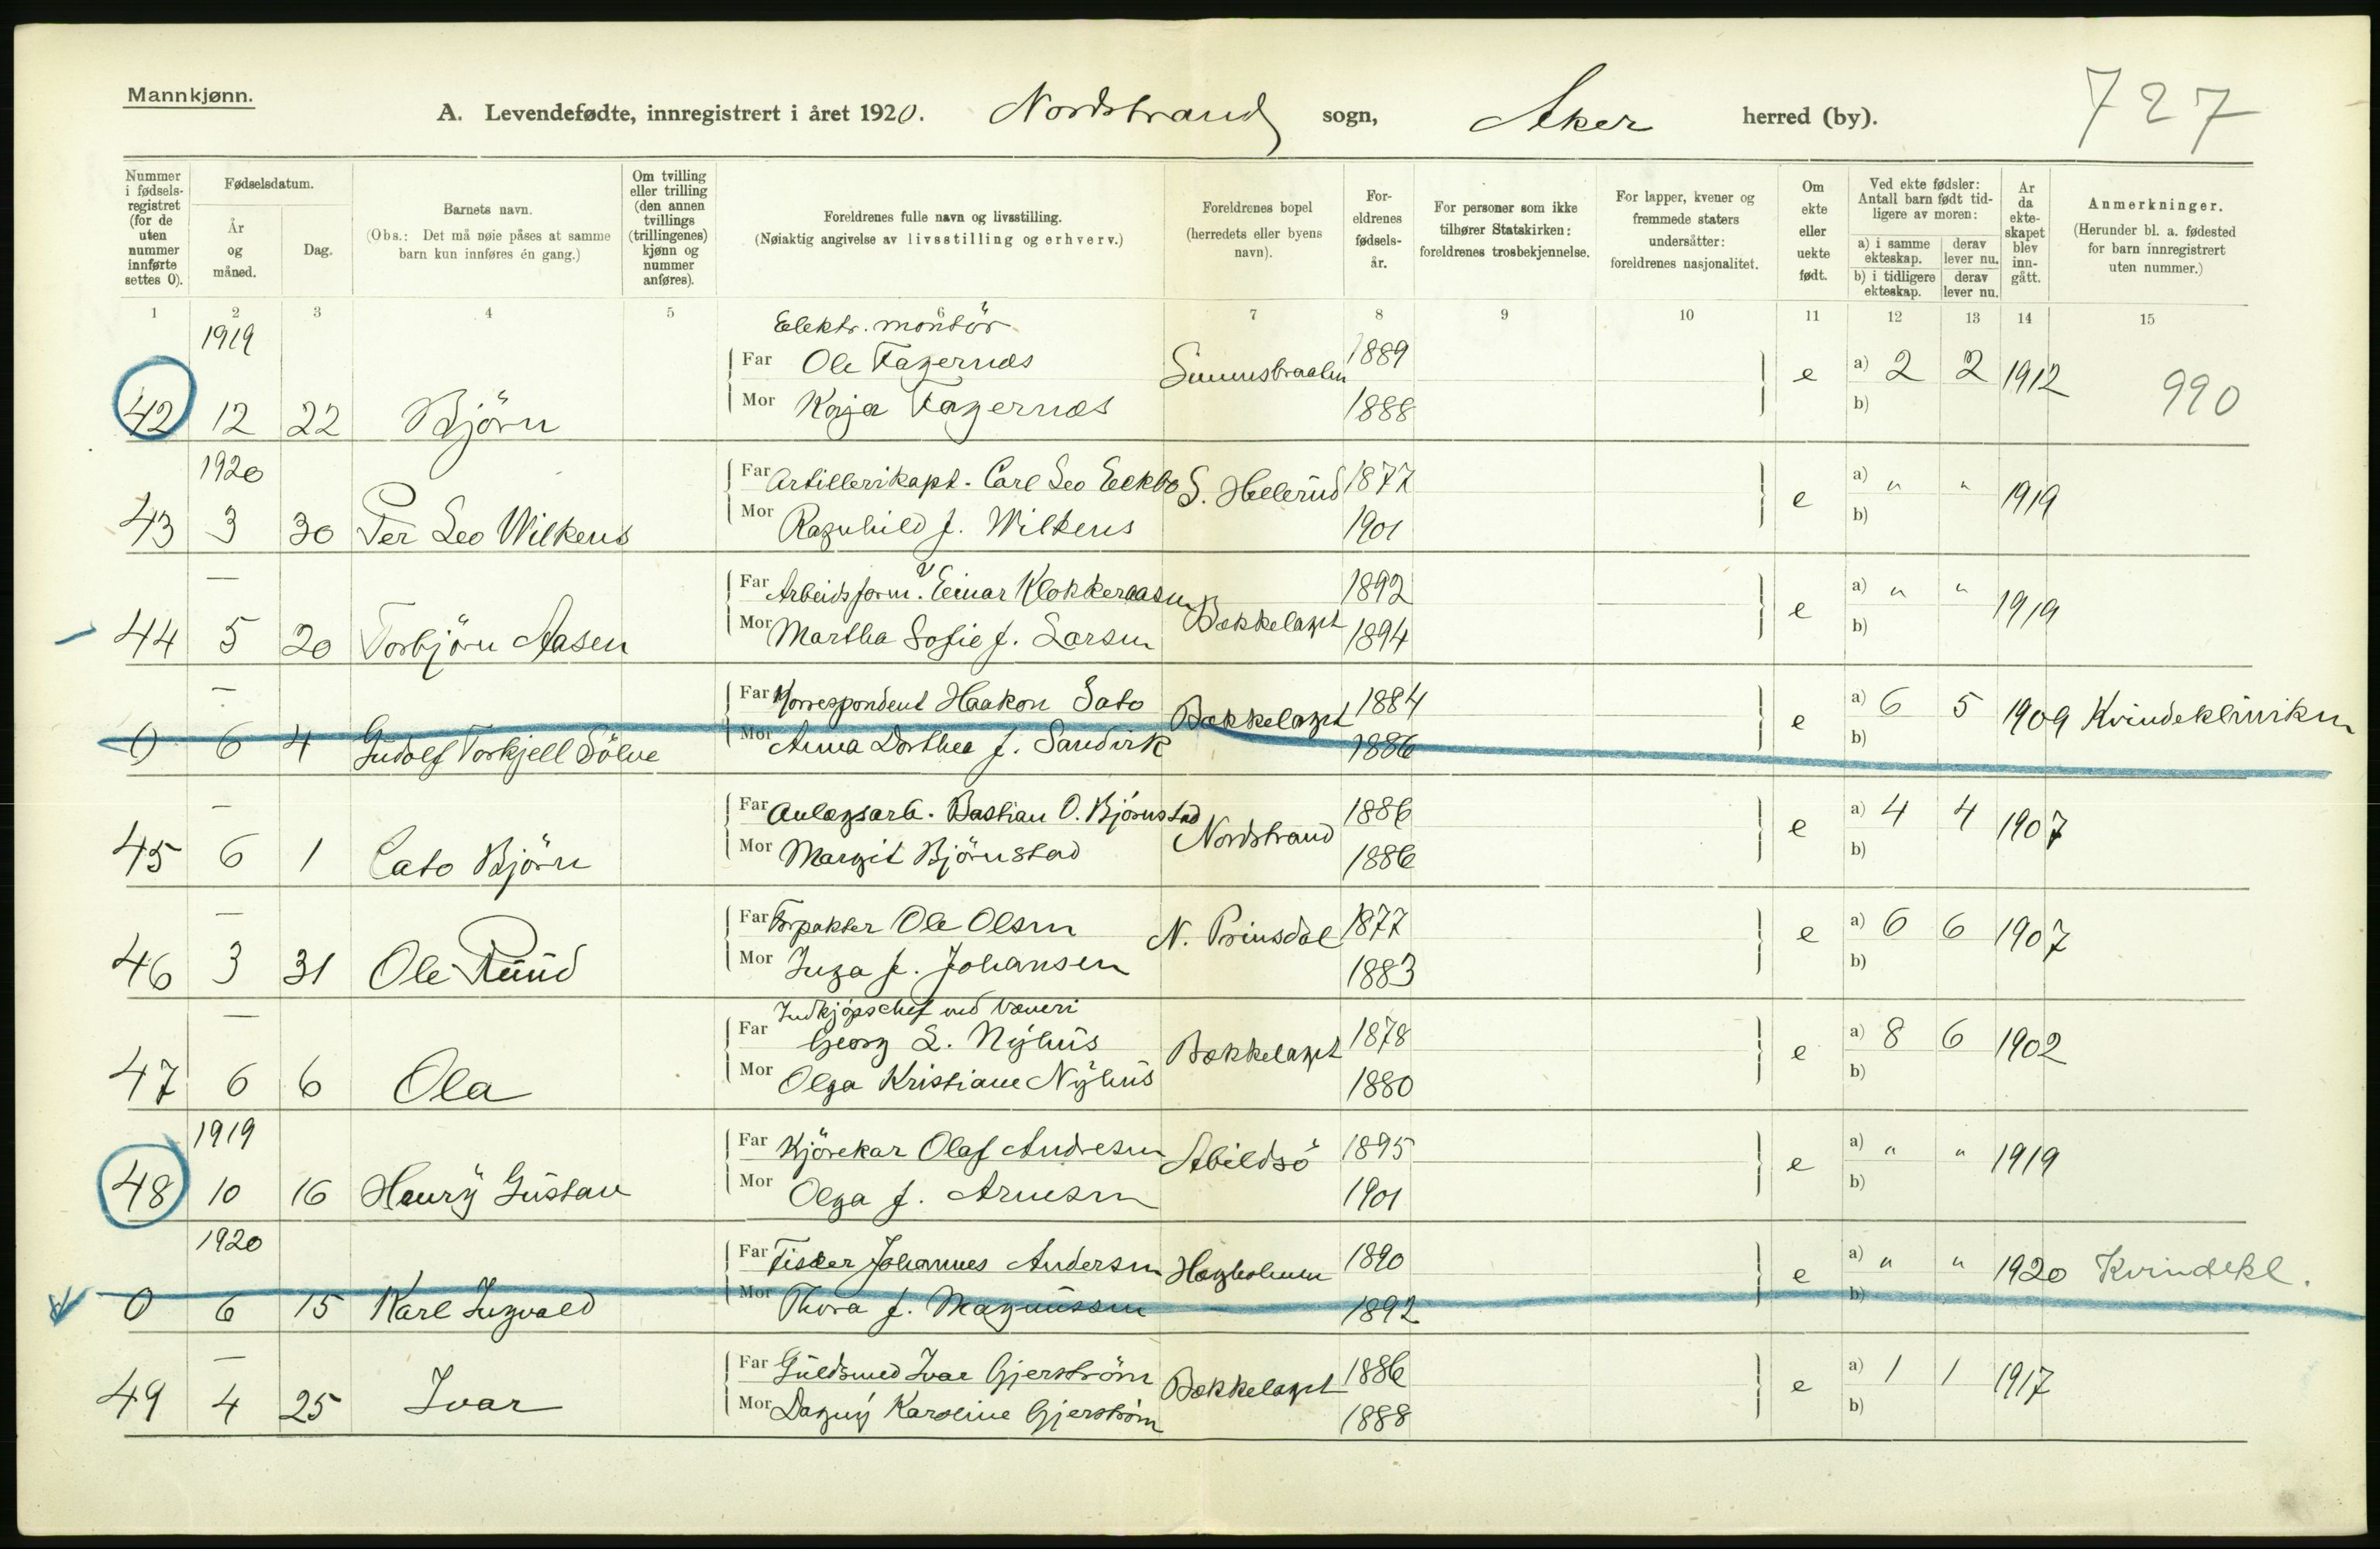 Mannkjønn.
A. Levendefødte, innregistrert i året 1920. Nordstrand sogn, Aker herred (by). 727
Nummer i fødsels-registret (for de uten nummer innførte settes 0).
Fødselsdatum.
År og måned.
Dag.
Barnets navn.
(Obs.: Det må nøie påses at samme barn kun innføres én gang.)
Om tvilling eller trilling (den annen tvillings (trillingenes) kjønn og nummer anføres).
Foreldrenes fulle navn og livsstilling.
(Nøiaktig angivelse av livsstilling og erhverv.)
Foreldrenes bopel (herredets eller byens navn).
For-eldrenes fødsels-år.
For personer som ikke tilhører Statskirken: foreldrenes trosbekjennelse.
For lapper, kvener og fremmede staters undersåtter: foreldrenes nasjonalitet.
Om ekte eller uekte født.
Ved ekte fødsler: Antall barn født tid-ligere av moren:
a) i samme ekteskap. derav lever nu.
b) i tidligere ekteskap. derav lever nu.
År da ekte-skapet blev inn-gått.
Anmerkninger.
(Herunder bl. a. fødested for barn innregistrert uten nummer.)
1 2 3 4 5 6 7 8 9 10 11 12 13 14 15
1919 Elektr. montör
Far Ole Fagernæs 1889 a) 2 2
42 12 22 Björn Mor Kaja Fagernæs 1888 e b) 1912 990
1920
Far Artillerikapt. Carl Leo Eckbo S. Hellerud 1877 a) " "
43 3 30 Per Leo Wilkens Mor Ragnhild f. Wilkens 1901 e b) 1919
— Far Arbeidsform. Einar Klokkeraasen Bækkelaget 1892 a) " "
44 5 20 Torbjörn Aasen Mor Martha Sofie f. Larsen 1894 e b) 1919
— Far Korrespondent Haakon Sato Bækkelaget 1884 a) 6 5
0 6 4 Gudolf Torkjell Sölve Mor Anna Dorthea f. Sandvik 1886 e b) 1909 Kvindeklinikken
— Far Anlegsarb. Bastian O. Björnstad Nordstrand 1886 a) 4 4
45 6 1 Cato Björn Mor Margit Björnstad 1886 e b) 1907
— Far Forpakter Ole Olsen N. Prinsdal 1877 a) 6 6
46 3 31 Ole Ruud Mor Inga f. Johansen 1883 e b) 1907
Indkjöpschef ved Væveri
— Far Georg L. Nyhus Bækkelaget 1878 a) 8 6
47 6 6 Ola Mor Olga Kristiane Nyhus 1880 e b) 1902
1919
Far Kjörekar Olaf Andresen Abildsö 1895 a) " "
48 10 16 Henry Gustav Mor Olga f. Arnesen 1901 e b) 1919
1920
Far Fisker Johannes Andersen Hægholmen 1890 a) " "
0 6 15 Karl Ingvald Mor Thora f. Magnussen 1892 e b) 1920 Kvindekl.
— Far Guldsmed Ivar Gjerström Bækkelaget 1886 a) 1 1
49 4 25 Ivar Mor Dagny Karoline Gjerström 1888 e b) 1917